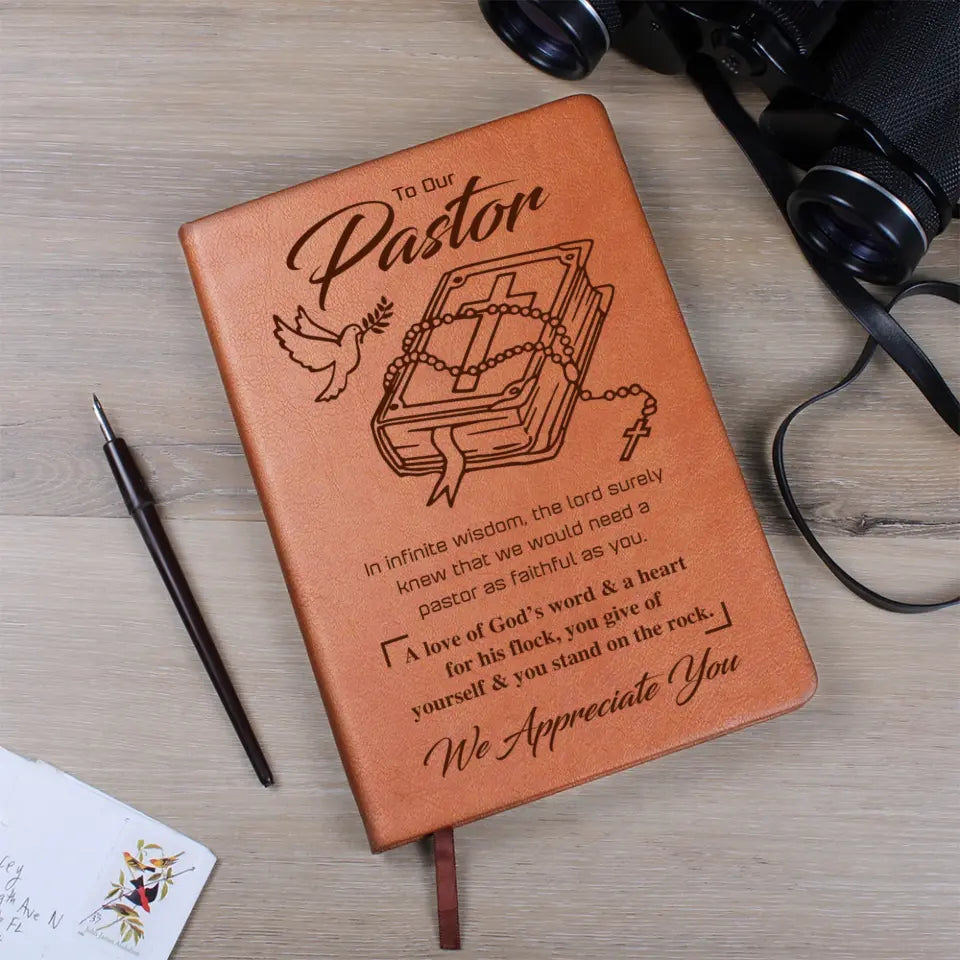 To Our
Pastor
In infinite wisdom, the lord surely
knew that we would need a
pastor as faithful as you.
A love of God's word & a heart
for his flock, you give of
yourself & you stand on the rock.
We Appreciate You
ley
Ave N
FL
37
John James Audubon